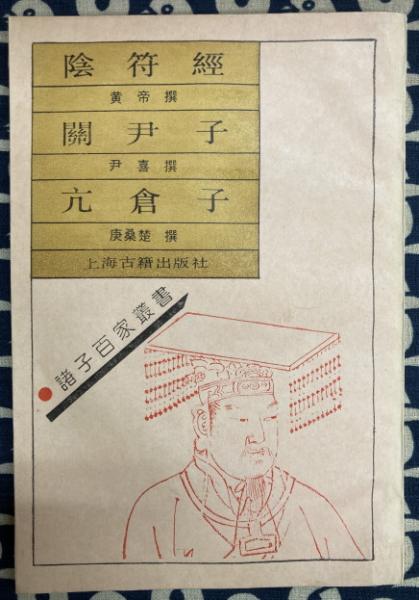 陰符經
黄帝撰
關尹子
尹喜撰
亢倉子
庚桑楚 撰
上海古籍出版社
諸子百家叢書